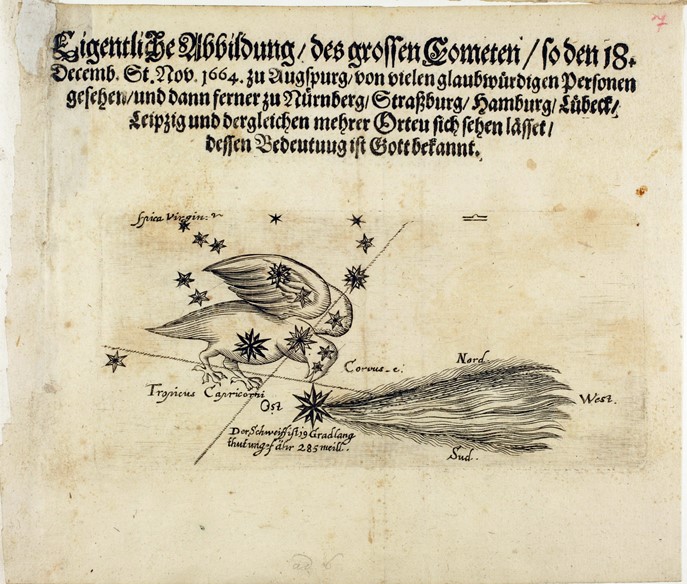 7
Eigentliche Abbildung / des grossen Cometen / so den 18.
Decemb. St. Nov. 1664. zu Augspurg / von vielen glaubwürdigen Personen
gesehen / und dann ferner zu Nürnberg / Straßburg / Hamburg / Lübeck /
Leipzig und dergleichen mehrer Orten sich sehen lässet /
dessen Bedeutuug ist Gott bekannt.
Spica Virgin:
♎
Nord.
Corvus
Tropicus Capricorni
West.
Ost
Der Schweiff ist 19 Grad lang
thut ungefähr 285 meill.
Sud.